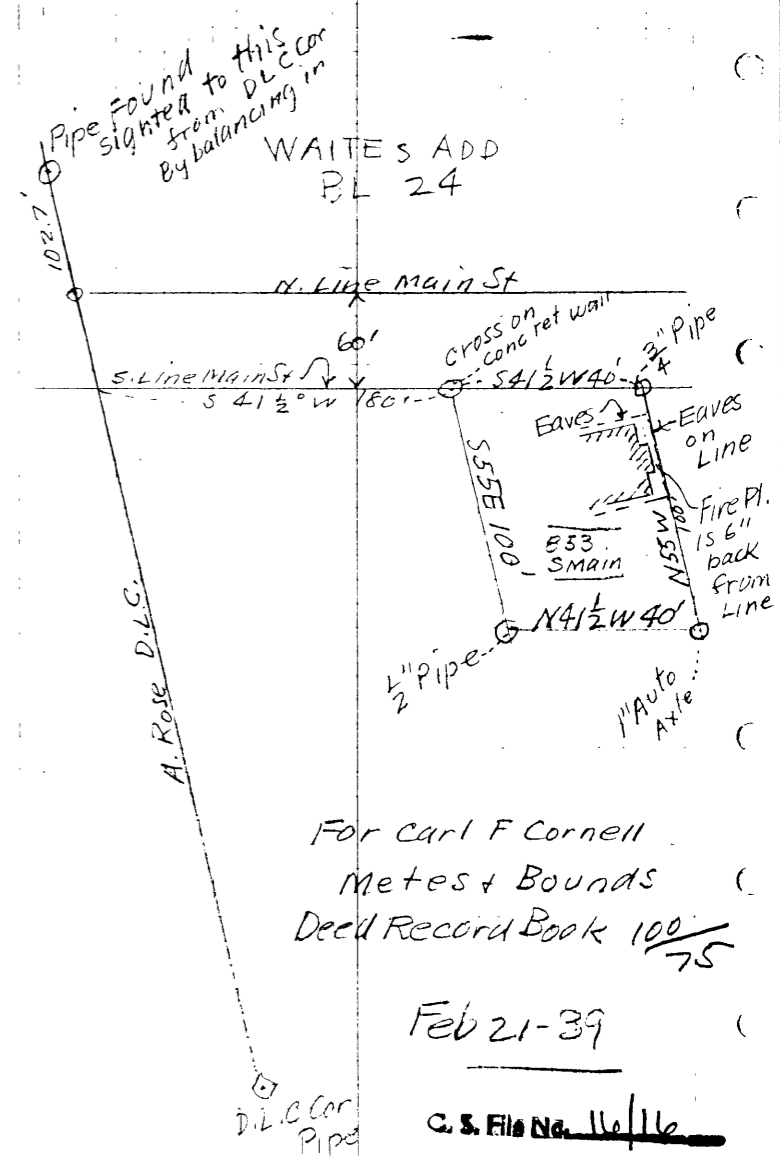 Pipe Found
sighted to this
from DLC Cor
By balancing in
WAITES ADD
BL 24
102.7'
N. Line Main St
60'
S. Line Main St
S 41½° W 180'
cross on
concret wall
S41½W40'
¾" Pipe
Eaves
Eaves
on
Line
S55E 100'
853
S Main
N55W 100'
Fire Pl.
is 6"
back
from
Line
N41½W 40'
½" Pipe
1" Auto
Axle
A. Rose D.L.C.
For Carl F Cornell
Metes & Bounds
Deed Record Book 100/75
Feb 21-39
D.L.C Cor
Pipe
C. S. File No. 16/16